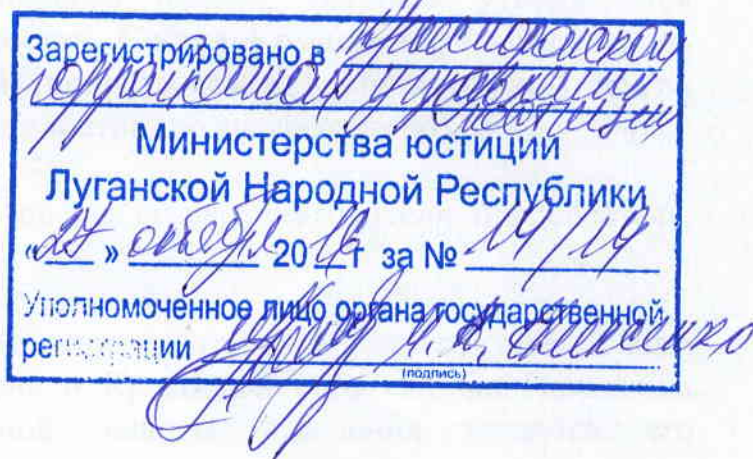 Зарегистрировано в Краснодонском
горрайонном управлении
юстиции
Министерства юстиции
Луганской Народной Республики
«27» октября 2016 г за № 19/19
Уполномоченное лицо органа государственной
регистрации
(подпись)